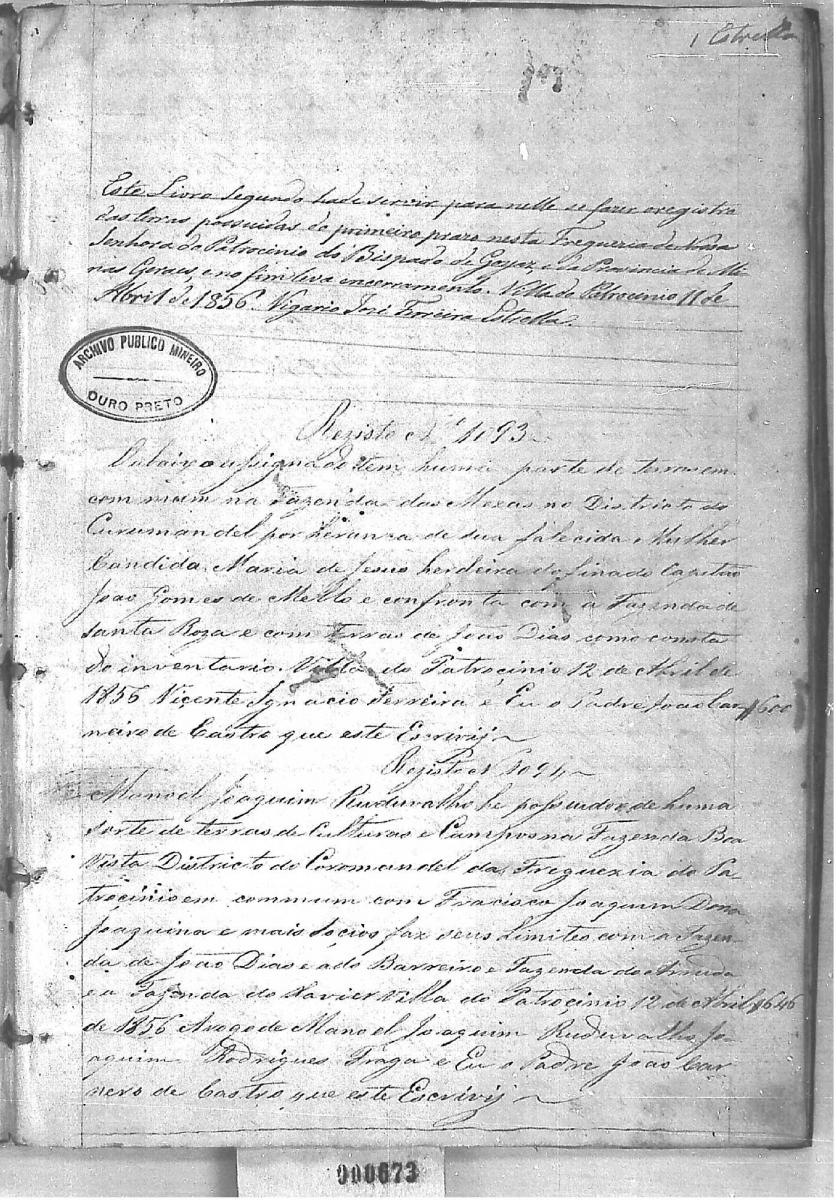 1 Estrella
Este Livro segundo hade servir para nelle se fazer o registro
das terras possuidas do primeiro prazo nesta Freguezia de Nossa
Senhora do Patrocinio do Bispado de Goyaz, e da Provincia de Mi
nas Geraes, e no fim leva encerramento. Villa do Patrocinio 11 de
Abril de 1856. Vigario José Ferreira Estrella.
ARCHIVO PUBLICO MINEIRO
OURO PRETO
Rezisto Nº 1093
O abaixo assignado tem huma parte de terras em
commum na Fazenda das Mezas no Districto do
Curumandel por heranza de sua falecida Mulher
Candida Maria de Jesus herdeira do finado Capitão
João Gomes de Mello e confronta com a Fazenda de
santa Roza e com Terras de João Dias como consta
do inventario. Villa do Patrocinio 12 de Abril de
1856 Vicente Ignacio Ferreira e Eu o Padre João Car
neiro de Castro que este Escrivij
Rezisto N 1094
Manoel Joaquim he possuidor de huma
sorte de terras de Culturas e Campos na Fazenda Boa
Vista Districto do Coromandel da Freguezia do Pa-
trocinio em commum com Fracisco Joaquim Dona
Joaquina e mais Socios faz seus Limites com a Fazen-
da de João Dias e a do Barreiro e Fazenda do Arruda
e a Fazenda do Xavier Villa do Patrocinio 12 de Abril
de 1856 Arogo de Manoel Joaquim Jo-
aquim Rodrigues Fraga e Eu o Padre João Car
nero de Castro que este Escrivij
000673